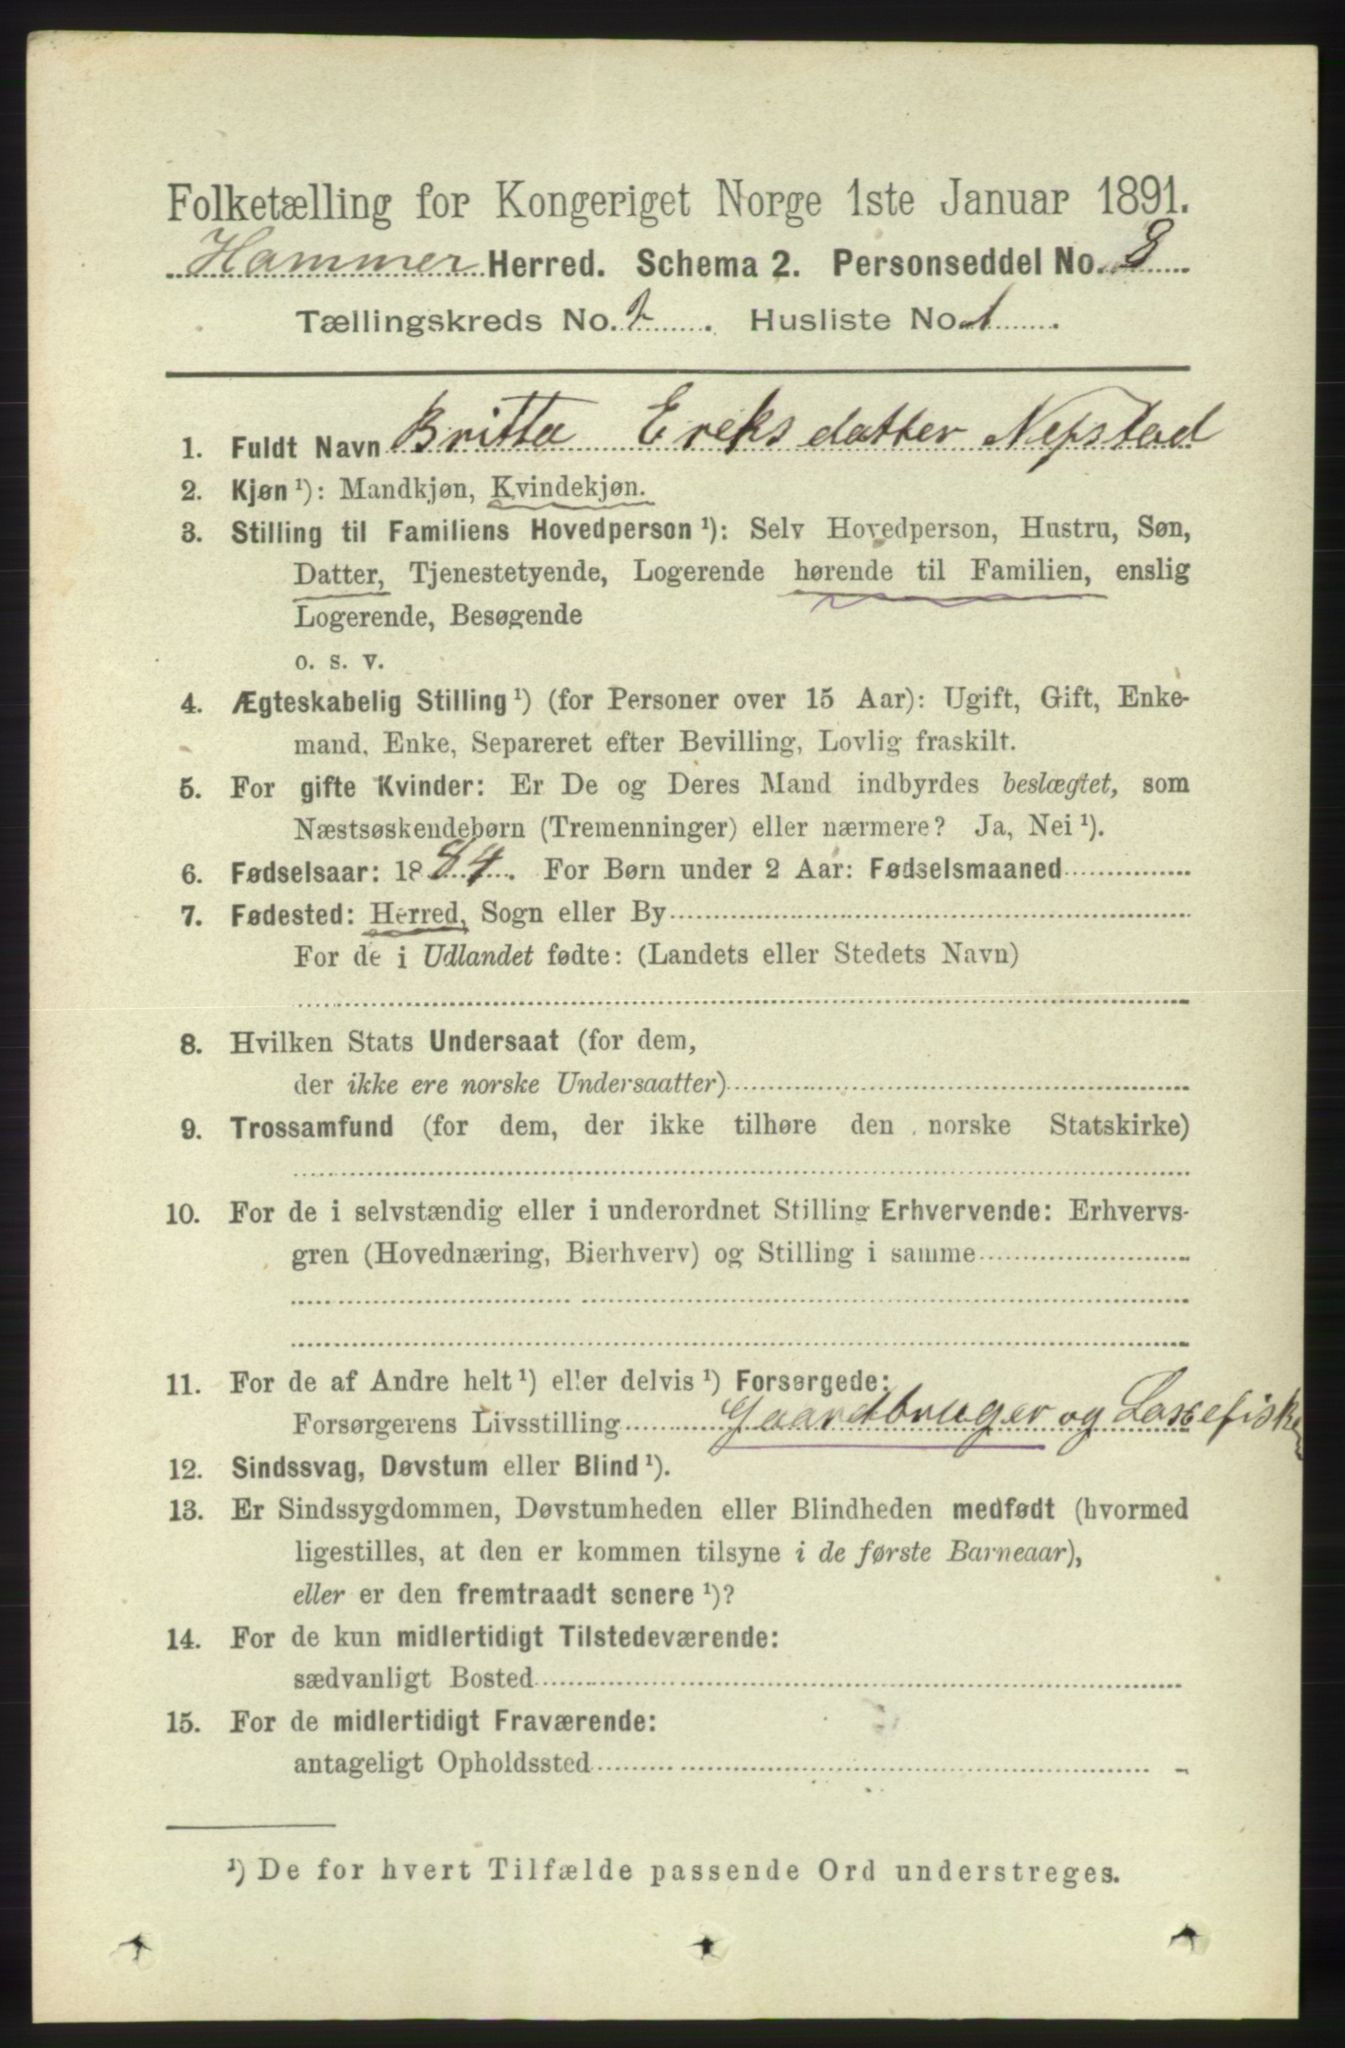 Folketælling for Kongeriget Norge 1ste Januar 1891.
Hammer Herred. Schema 2. Personseddel No. 8
Tællingskreds No. 2. Husliste No. 1.
1. Fuldt Navn Britta Ereksdatter Nepstad
2. Kjøn ¹): Mandkjøn, Kvindekjøn.
3. Stilling til Familiens Hovedperson ¹): Selv Hovedperson, Hustru, Søn,
Datter, Tjenestetyende, Logerende hørende til Familien, enslig
Logerende, Besøgende
o. s. v.
4. Ægteskabelig Stilling ¹) (for Personer over 15 Aar): Ugift, Gift, Enke-
mand, Enke, Separeret efter Bevilling, Lovlig fraskilt.
5. For gifte Kvinder: Er De og Deres Mand indbyrdes beslægtet, som
Næstsøskendebørn (Tremenninger) eller nærmere? Ja, Nei ¹).
6. Fødselsaar: 1884. For Børn under 2 Aar: Fødselsmaaned
7. Fødested: Herred, Sogn eller By
For de i Udlandet fødte: (Landets eller Stedets Navn)
8. Hvilken Stats Undersaat (for dem,
der ikke ere norske Undersaatter)
9. Trossamfund (for dem, der ikke tilhøre den norske Statskirke)
10. For de i selvstændig eller i underordnet Stilling Erhvervende: Erhvervs-
gren (Hovednæring, Bierhverv) og Stilling i samme
11. For de af Andre helt ¹) eller delvis ¹) Forsørgede:
Forsørgerens Livsstilling Gaardbruger og Laxefisker
12. Sindssvag, Døvstum eller Blind ¹).
13. Er Sindssygdommen, Døvstumheden eller Blindheden medfødt (hvormed
ligestilles, at den er kommen tilsyne i de første Barneaar),
eller er den fremtraadt senere ¹)?
14. For de kun midlertidigt Tilstedeværende:
sædvanligt Bosted
15. For de midlertidigt Fraværende:
antageligt Opholdssted
¹) De for hvert Tilfælde passende Ord understreges.